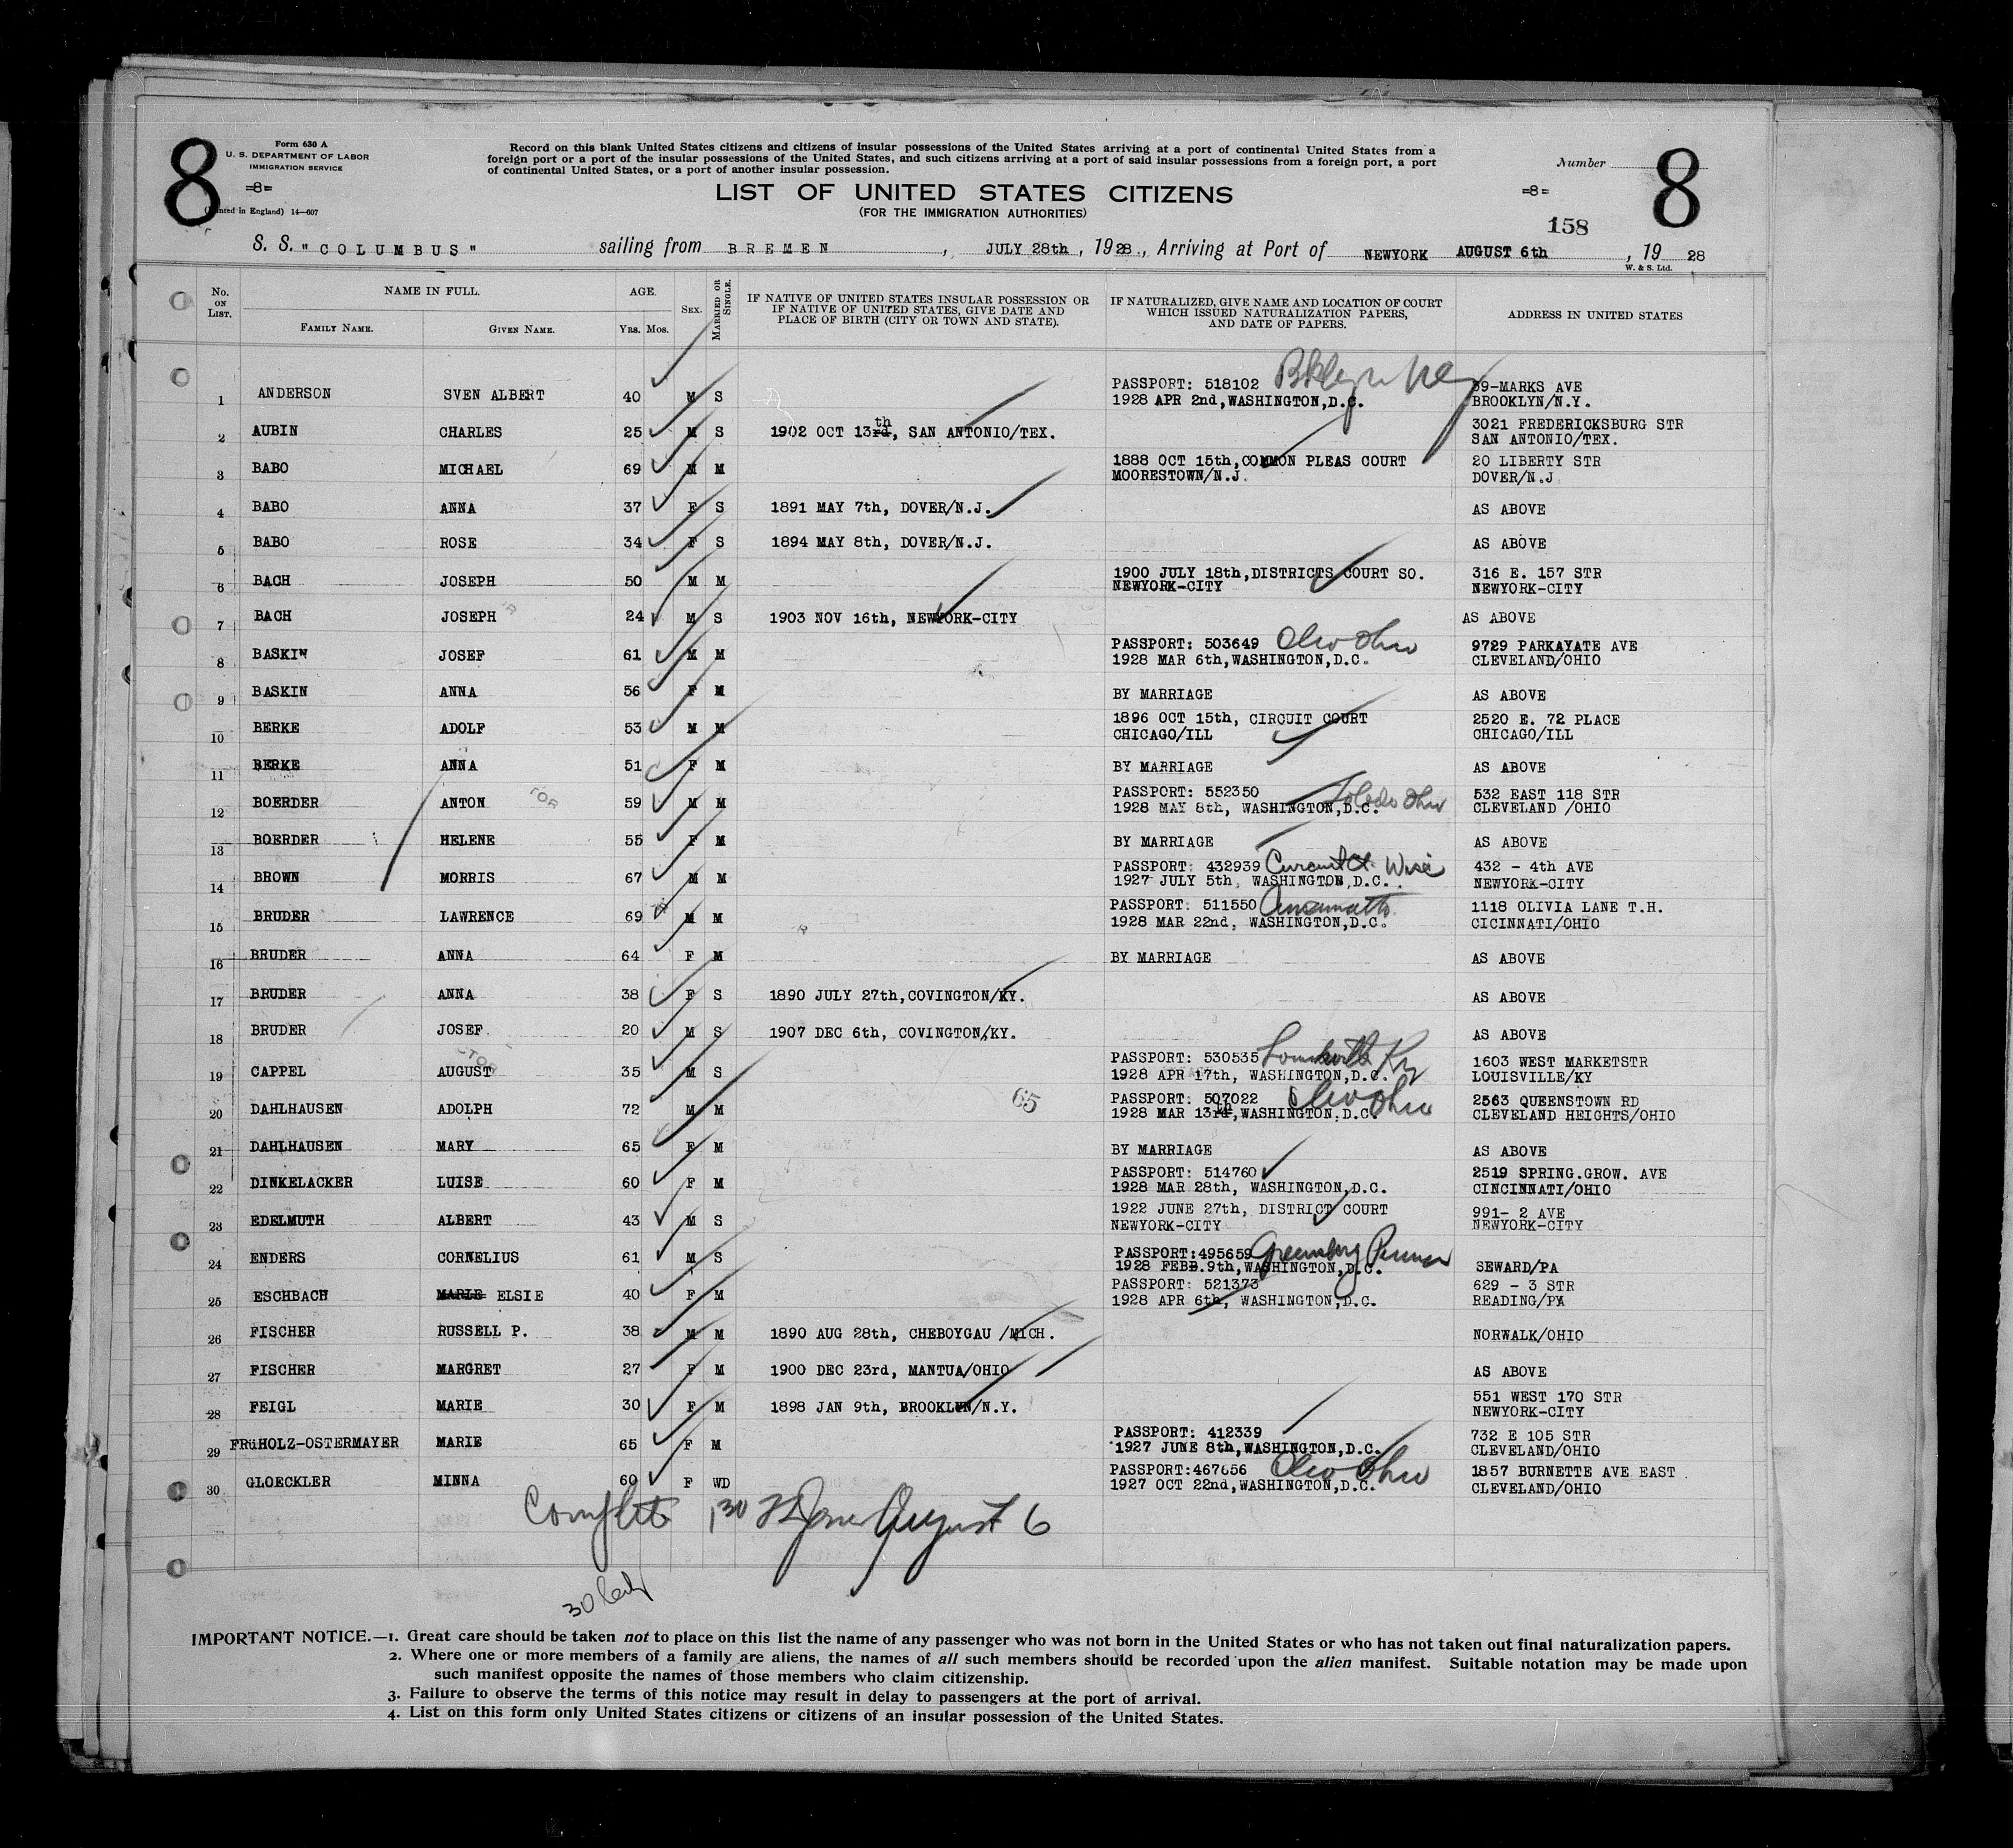 8
Form 630 A
U. S. DEPARTMENT OF LABOR
IMMIGRATION SERVICE
=8=
(Printed in England) 14—607
Record on this blank United States citizens and citizens of insular possessions of the United States arriving at a port of continental United States from a
foreign port or a port of the insular possessions of the United States, and such citizens arriving at a port of said insular possessions from a foreign port, a port
of continental United States, or a port of another insular possession.
LIST OF UNITED STATES CITIZENS
(FOR THE IMMIGRATION AUTHORITIES)
Number
=8=
8
158
S. S. "COLUMBUS" sailing from BREMEN, JULY 28th, 1928., Arriving at Port of NEWYORK AUGUST 6th, 19 28
W. & S. Ltd.
No. ON LIST. NAME IN FULL. AGE. SEX. MARRIED OR SINGLE. IF NATIVE OF UNITED STATES INSULAR POSSESSION OR IF NATIVE OF UNITED STATES, GIVE DATE AND PLACE OF BIRTH (CITY OR TOWN AND STATE). IF NATURALIZED, GIVE NAME AND LOCATION OF COURT WHICH ISSUED NATURALIZATION PAPERS, AND DATE OF PAPERS. ADDRESS IN UNITED STATES
FAMILY NAME. GIVEN NAME. YRS. MOS.
1 ANDERSON SVEN ALBERT 40 M S PASSPORT: 518102 59-MARKS AVE
1928 APR 2nd, WASHINGTON, D.C. BROOKLYN/N.Y.
2 AUBIN CHARLES 25 M S 1902 OCT 13rd th, SAN ANTONIO/TEX. 3021 FREDERICKSBURG STR
SAN ANTONIO/TEX.
3 BABO MICHAEL 69 M M 1888 OCT 15th, COMMON PLEAS COURT 20 LIBERTY STR
MOORESTOWN/N.J. DOVER/N.J
4 BABO ANNA 37 F S 1891 MAY 7th, DOVER/N.J. AS ABOVE
5 BABO ROSE 34 F S 1894 MAY 8th, DOVER/N.J. AS ABOVE
6 BACH JOSEPH 50 M M 1900 JULY 18th, DISTRICTS COURT SO. 316 E. 157 STR
NEWYORK-CITY NEWYORK-CITY
7 BACH JOSEPH 24 M S 1903 NOV 16th, NEWYORK-CITY AS ABOVE
8 BASKIN JOSEF 61 M M PASSPORT: 503649 Clev Ohio 9729 PARKAYATE AVE
1928 MAR 6th, WASHINGTON, D.C. CLEVELAND/OHIO
9 BASKIN ANNA 56 F M BY MARRIAGE AS ABOVE
10 BERKE ADOLF 53 M M 1896 OCT 15th, CIRCUIT COURT 2520 E. 72 PLACE
CHICAGO/ILL CHICAGO/ILL
11 BERKE ANNA 51 F M BY MARRIAGE AS ABOVE
12 BOERDER ANTON 59 M M PASSPORT: 552350 Toledo Ohio 532 EAST 118 STR
1928 MAY 8th, WASHINGTON, D.C. CLEVELAND /OHIO
13 BOERDER HELENE 55 F M BY MARRIAGE AS ABOVE
14 BROWN MORRIS 67 M M PASSPORT: 432939 Circuit Ct. Wisc 432 - 4th AVE
1927 JULY 5th, WASHINGTON, D.C. NEWYORK-CITY
15 BRUDER LAWRENCE 69 M M PASSPORT: 511550 1118 OLIVIA LANE T.H.
1928 MAR 22nd, WASHINGTON, D.C. CICINNATI/OHIO
16 BRUDER ANNA 64 F M BY MARRIAGE AS ABOVE
17 BRUDER ANNA 38 F S 1890 JULY 27th, COVINGTON/KY. AS ABOVE
18 BRUDER JOSEF 20 M S 1907 DEC 6th, COVINGTON/KY. AS ABOVE
19 CAPPEL AUGUST 35 M S PASSPORT: 530535 Louisville Ky 1603 WEST MARKETSTR
1928 APR 17th, WASHINGTON, D.C. LOUISVILLE/KY
20 DAHLHAUSEN ADOLPH 72 M M 65 PASSPORT: 507022 Clev Ohio 2563 QUEENSTOWN RD
1928 MAR 13rd th, WASHINGTON, D.C. CLEVELAND HEIGHTS/OHIO
21 DAHLHAUSEN MARY 65 F M BY MARRIAGE AS ABOVE
22 DINKELACKER LUISE 60 F M PASSPORT: 514760 2519 SPRING.GROW. AVE
1928 MAR 28th, WASHINGTON, D.C. CINCINNATI/OHIO
23 EDELMUTH ALBERT 43 M S 1922 JUNE 27th, DISTRICT COURT 991- 2 AVE
NEWYORK-CITY NEWYORK-CITY
24 ENDERS CORNELIUS 61 M S PASSPORT: 495659 Greensburg Penna
1928 FEB.9th, WASHINGTON, D.C. SEWARD/PA
25 ESCHBACH MARIE ELSIE 40 F M PASSPORT: 521373 629 - 3 STR
1928 APR 6th, WASHINGTON, D.C. READING/PA
26 FISCHER RUSSELL P. 38 M M 1890 AUG 28th, CHEBOYGAU /MICH. NORWALK/OHIO
27 FISCHER MARGRET 27 F M 1900 DEC 23rd, MANTUA/OHIO AS ABOVE
28 FEIGL MARIE 30 F M 1898 JAN 9th, BROOKLYN/N.Y. 551 WEST 170 STR
NEWYORK-CITY
29 FRüHOLZ-OSTERMAYER MARIE 65 F M PASSPORT: 412339 732 E 105 STR
1927 JUNE 8th, WASHINGTON, D.C. CLEVELAND/OHIO
30 GLOECKLER MINNA 60 F WD PASSPORT: 467656 Clev Ohio 1857 BURNETTE AVE EAST
1927 OCT 22nd, WASHINGTON, D.C. CLEVELAND/OHIO
August 6
30
IMPORTANT NOTICE.—1. Great care should be taken not to place on this list the name of any passenger who was not born in the United States or who has not taken out final naturalization papers.
2. Where one or more members of a family are aliens, the names of all such members should be recorded upon the alien manifest. Suitable notation may be made upon
such manifest opposite the names of those members who claim citizenship.
3. Failure to observe the terms of this notice may result in delay to passengers at the port of arrival.
4. List on this form only United States citizens or citizens of an insular possession of the United States.